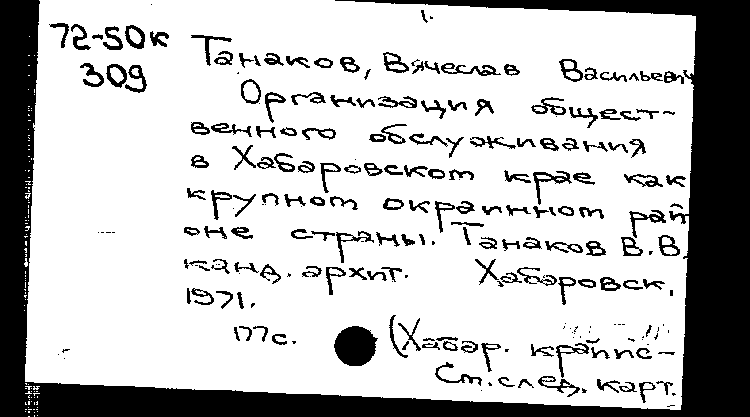 1.
72-50к
309
Танаков, Вячеслав Васильевич
Организация общест-
венного обслуживания
в Хабаровском крае как
крупном окраинном рай
оне страны. Танаков В.В.
канд. архит. Хабаровск,
1971.
177с.
(Хабар. крайпс-
См. след. карт.